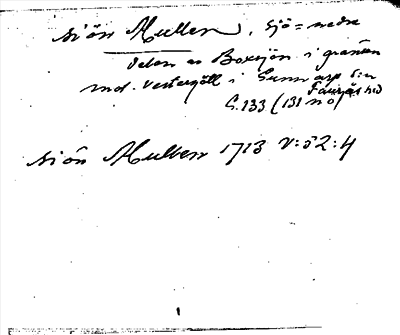 sjön Mullen, sjö = nedre
delen av Boxsjön i gränsen
mot Västergötl i Gunnarp sn
Faurås hd
G. 133 (131 no)
sjön Mullen 1713 V:52:4